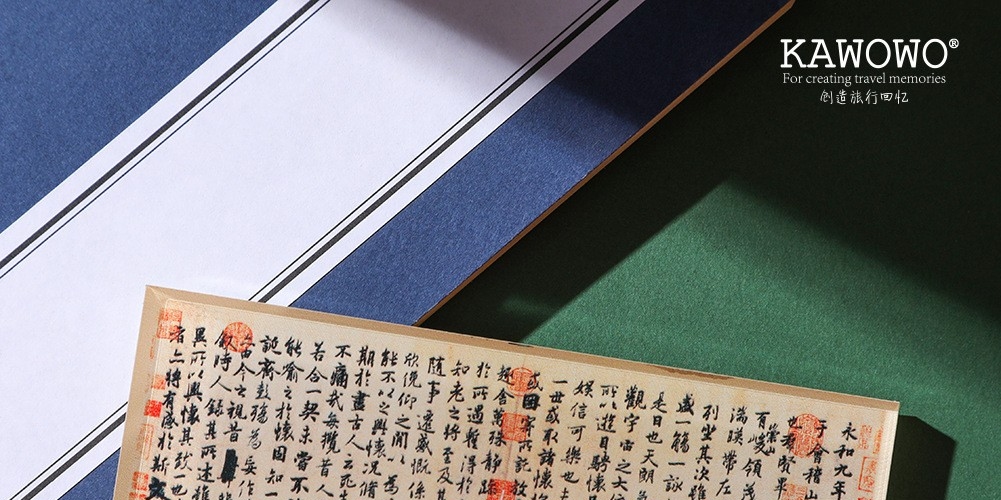 KAWOWO®
For creating travel memories
创造旅行回忆
永和九年
于會稽山
也羣賢畢
有崇山峻領茂
湍暎帶左
列坐其次雖
盛一觴一詠
是日也天朗
觀宇宙之大
所以遊目騁懷
娛信可樂也
一世或取諸懷
或因寄所託放
趣舍萬殊靜躁
於所遇蹔得於
知老之將至及其
隨事遷感慨係
欣俛仰之閒以為
能不以之興懷況脩
期於盡古人云死生
不痛哉每攬昔人
若合一契未嘗不
能喻之於懷固知一
誕齊彭殤為妄作
亦由今之視昔
敘時人錄其所述雖
異所以興懷其致一也
者亦將有感於斯